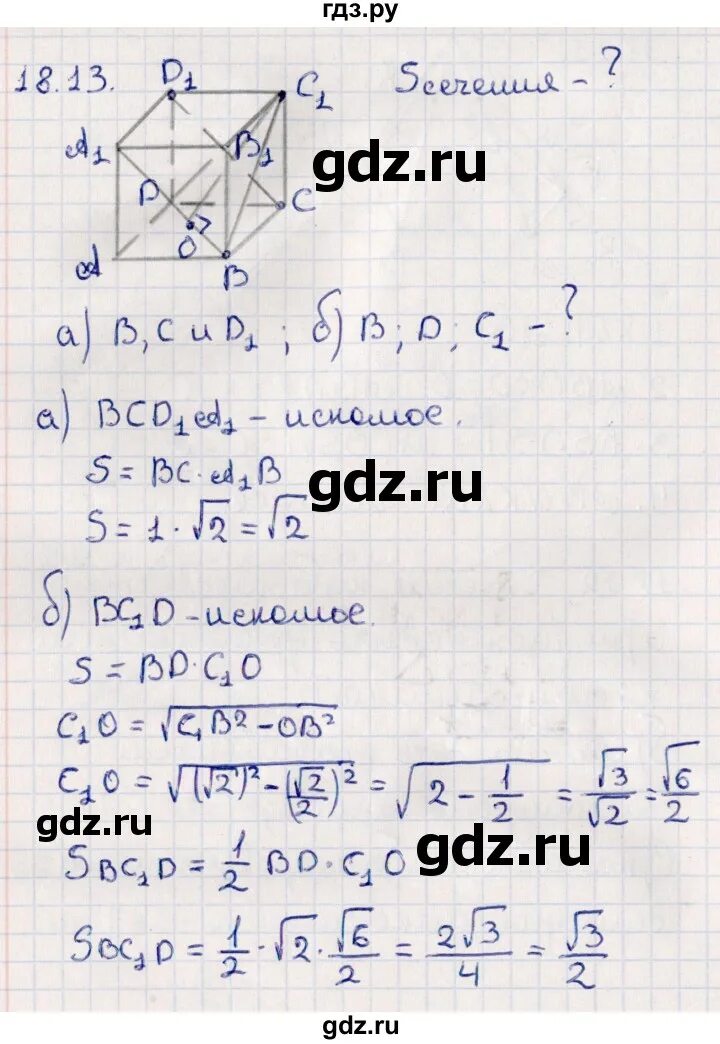 гдз.ру
18.13. D₁ C₁ Sсечения - ?
A₁ B₁ gdz.ru
D C
O
A B
а) B, C и D₁ ; б) B ; D ; C₁ - ?
а) BCD₁A₁ - искомое.
S = BC · A₁B gdz.ru
S = 1 · √2 = √2
б) BC₁D - искомое.
S = BD · C₁O
C₁O = √(C₁B² - OB²)
C₁O = √((√2)² - (√2/2)²) = √(2 - 1/2) = √3/√2 = √6/2
gdz.ru gdz.ru
S BC₁D = 1/2 BD · C₁O
S BC₁D = 1/2 · √2 · √6/2 = 2√3/4 = √3/2
gdz.ru